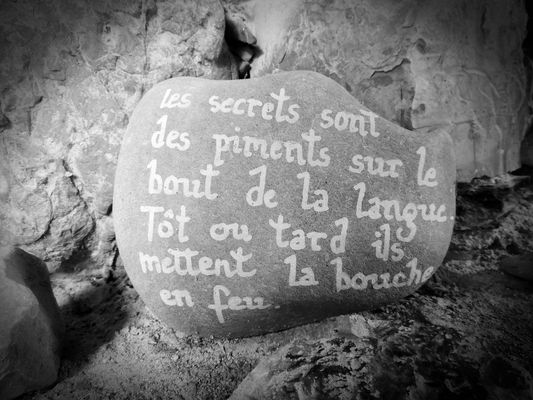 les secrets sont
des piments sur le
bout de la langue.
Tôt ou tard ils
mettent la bouche
en feu.